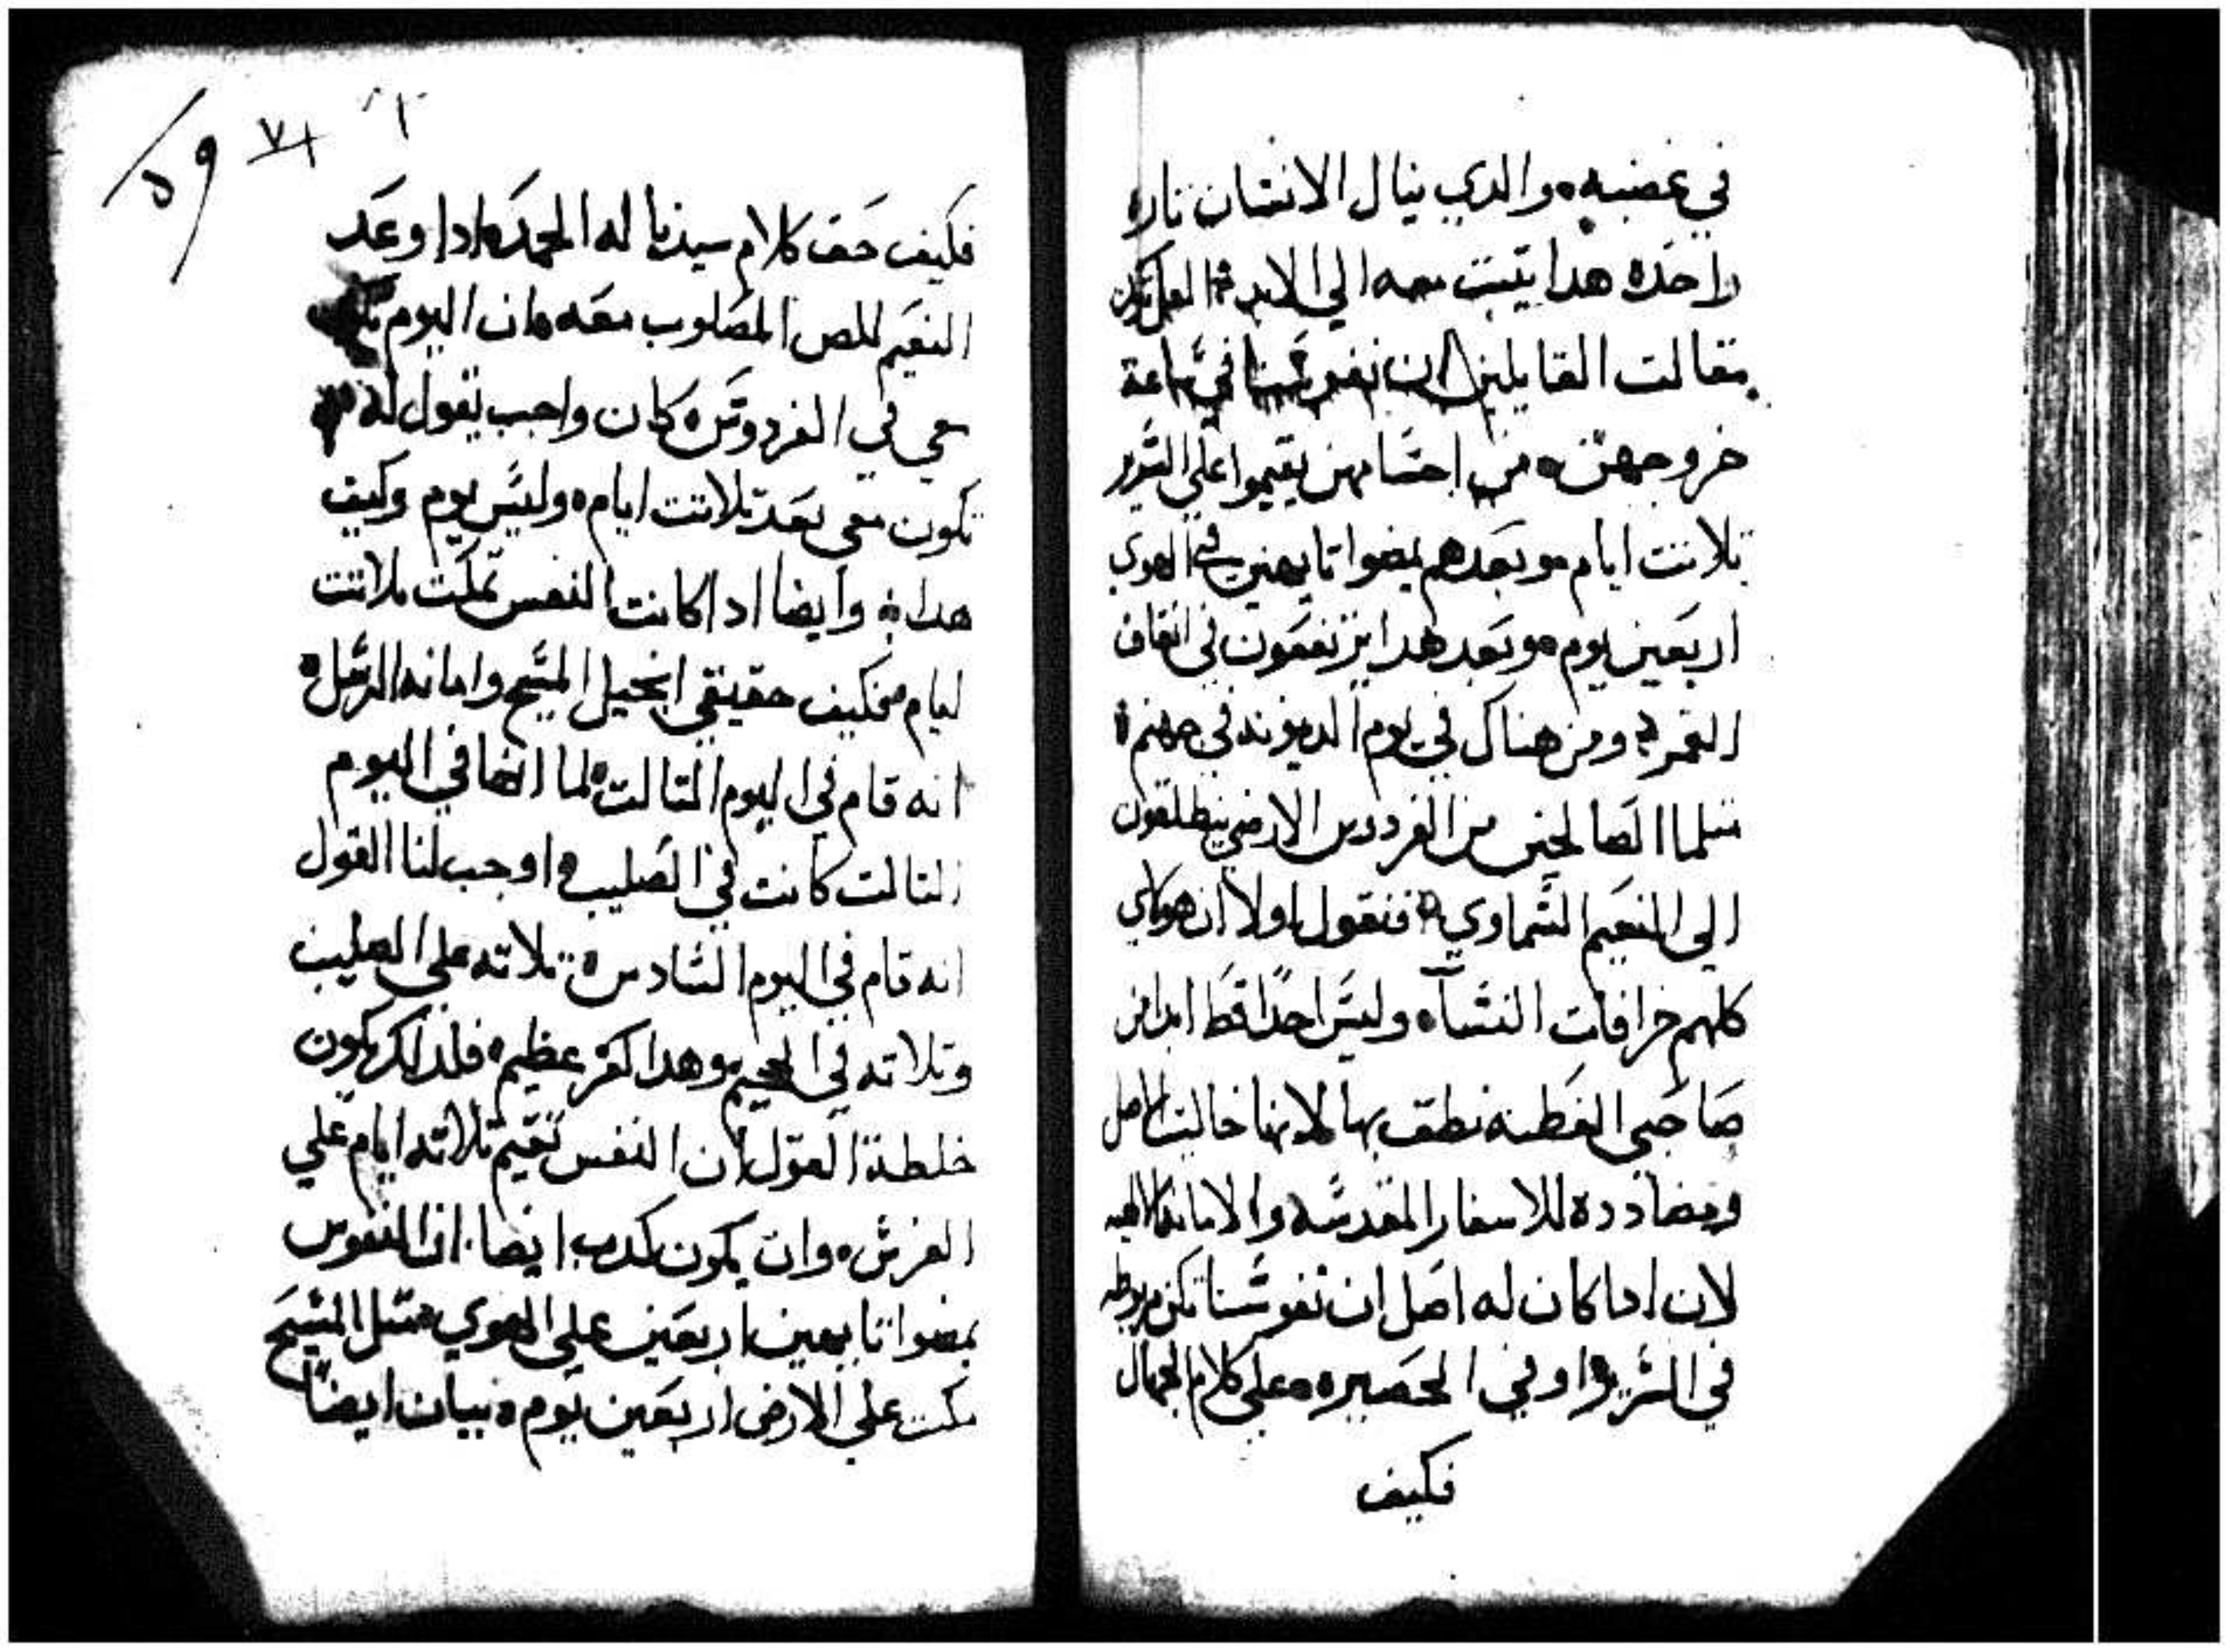 في غضبه ٥ والدي ينال الانسان تاره
واحده هدا يتبت معه الي الابد
بمقالت القايلين ان نفوسنا في ساعة
خروجهن ٥ من اجسامهن يقيموا علي السرير
تلاتت ايام ٥ وبعدهم يمضوا تايهين في الهوي
اربعين يوم ٥ وبعد هدا يرتفعون في اتفاق
القمر ٥ ومن هناك في يوم الدينونه في جهنم ٥
متلما الصالحين من الفردوس الارضي ينطلقون
الي النعيم السماوي ٥ فنقول اولا ان هولاي
كلهم خرافات النسآ ٥ وليس احدا قط ابدا من
صاحبي الفطنه نطق بها لانها خاليت الاصل
ومضادده للاسفار المقدسه والامانه الالهيه
لان ادا كان له اصل ان نفوسنا تكن مربوطه
في السرير ٥ او في الحصيره ٥ علي كلام الجهال
فكيف
٥٩ ٧١
فكيف حق كلام سيدنا له المجد ٥ ادا وعد
النعيم للص المصلوب معه ٥ ان اليوم تكون
معي في الفردوس ٥ كان واجب يقول له
تكون معي بعد تلاتت ايام ٥ وليس يوم وكيف
هدا ٥ وايضا ادا كانت النفس تمكت تلاتت
ايام ٥ فكيف حقيقي انجيل المسيح وامانه الرسل ٥
انه قام في اليوم التالت ٥ لما انها في اليوم
التالت كانت في الصليب ٥ اوجب لنا القول
انه قام في اليوم السادس ٥ تلاته علي الصليب
وتلاته في الجحيم ٥ وهدا كفر عظيم ٥ فلدالك يكون
خلطة القول ان النفس تقيم تلاته ايام علي
الفرش ٥ وان يكون كدب ايضا ان النفوس
يمضوا تايهين اربعين علي الهوي متل المسيح
مكت علي الارض اربعين يوم ٥ نبيان ايضاً